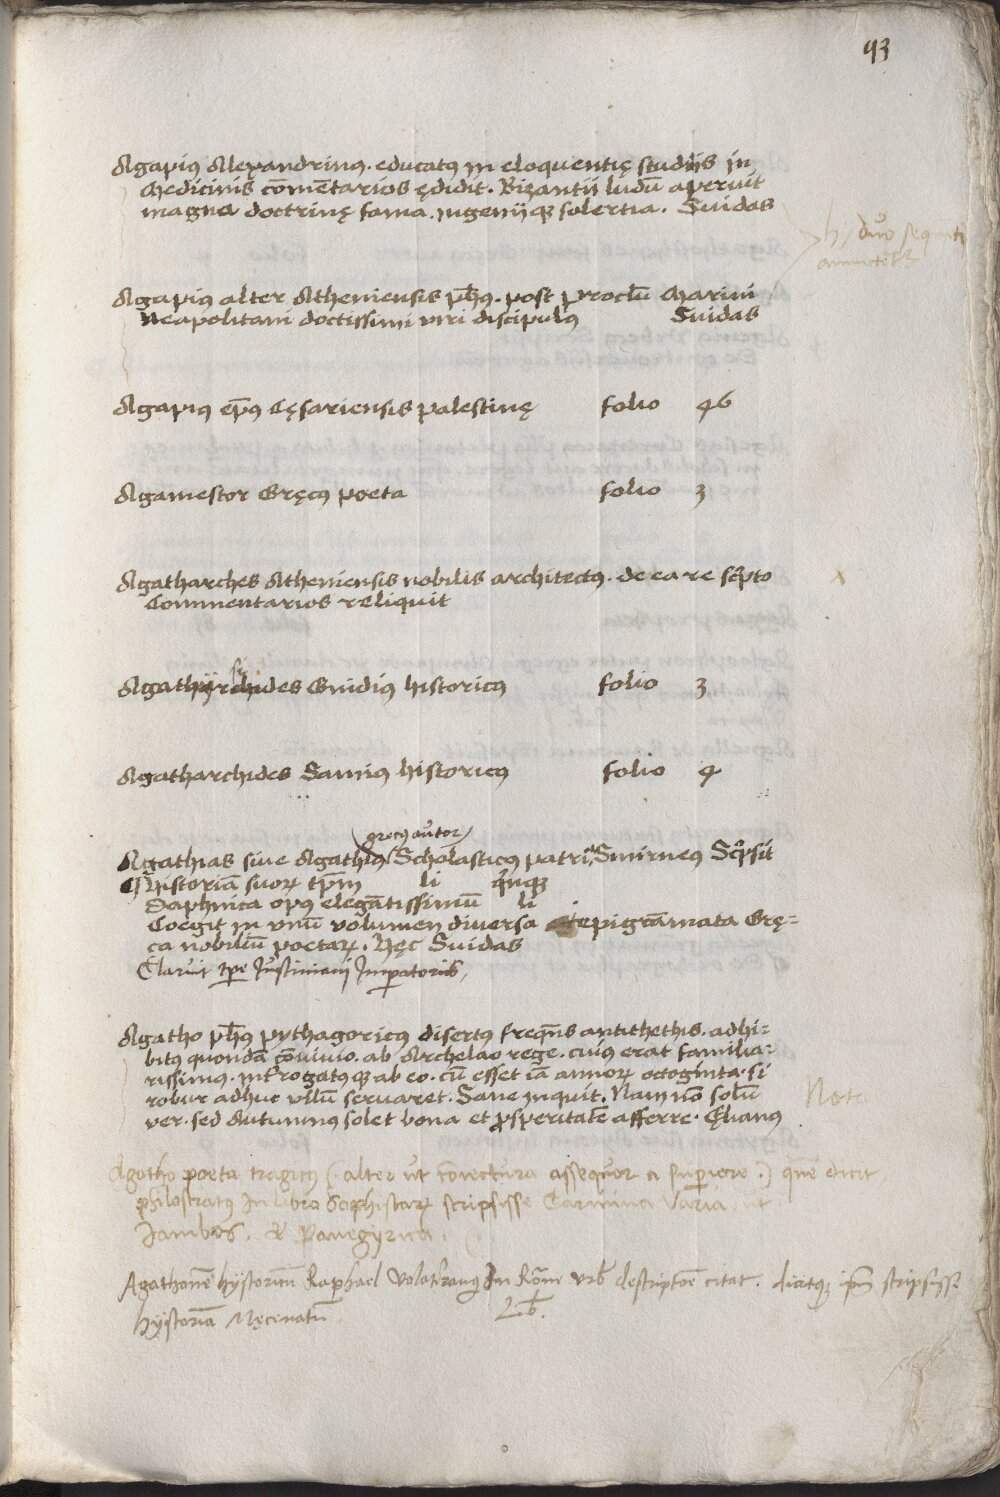 93
Agapiꝰ Alexandrinꝰ. educatꝰ in eloquentię studiis in
Medicinis cōmētarios ędidit. Bizantij ludū aperuit
magna doctrinę fama. ingenijqꝫ solertia. Suidas
h/ duo sequēti
Agapiꝰ alter Atheniensis ph̄ꝰ. post Proclū Marini
Neapolitani doctissimi viri discipulꝰ Suidas
Agapiꝰ ep̄ꝰ Cęsariensis palestinę folio 46
Agamestor Gręcꝰ poeta folio 3
Agatharches Atheniensis nobilis architectꝰ. de ea re sc̄pto
Commentarios reliquit
Agathyrsides Gnidiꝰ historicꝰ folio 3
Agatharchides Samiꝰ historicꝰ folio 4
grecꝰ autor
Agathias siue Agathiꝰ Scholasticꝰ patria Smirneꝰ Sc̄psit
Historiā suoꝝ tp̄m li qⁱnqꝫ
Daphnica opꝰ elegātissimū li
Coegit in vnū volumen diuersa epigrāmata Grę=
ca nobiliū poetaꝝ. Hęc Suidas
Claruit tp̄e Justiniani Imp̄atoris,
Agatho ph̄ꝰ pythagoricꝰ disertꝰ freqn̄s antithethis. adhi=
bitꝰ quondā cōuiuio. ab Archelao rege. cuiꝰ erat familia=
rissimꝰ. int̄rogatꝰqꝫ ab eo. cū esset iā annoꝝ octoginta. si
robur adhuc vllū seruaret. Sane inquit. Nam nō solū
ver. sed Autumnꝰ solet bona et ꝓsperitatē afferre. Ęlianꝰ
Nota
Agatho poeta tragicꝰ (alter ut cōiectura assequor a supiore.) quē dicit
philostratꝰ In libro Sophistaꝝ scripsisse Carmina Varia ut
Iambos. & Panegyrica.
Agathonē hystoricū Raphael Volat̄ranꝰ In Rōme vrb̄ descriptōe citat. dicitqꝫ ip̄m scripsisse
hystoriā Męcenatū Lib̄.